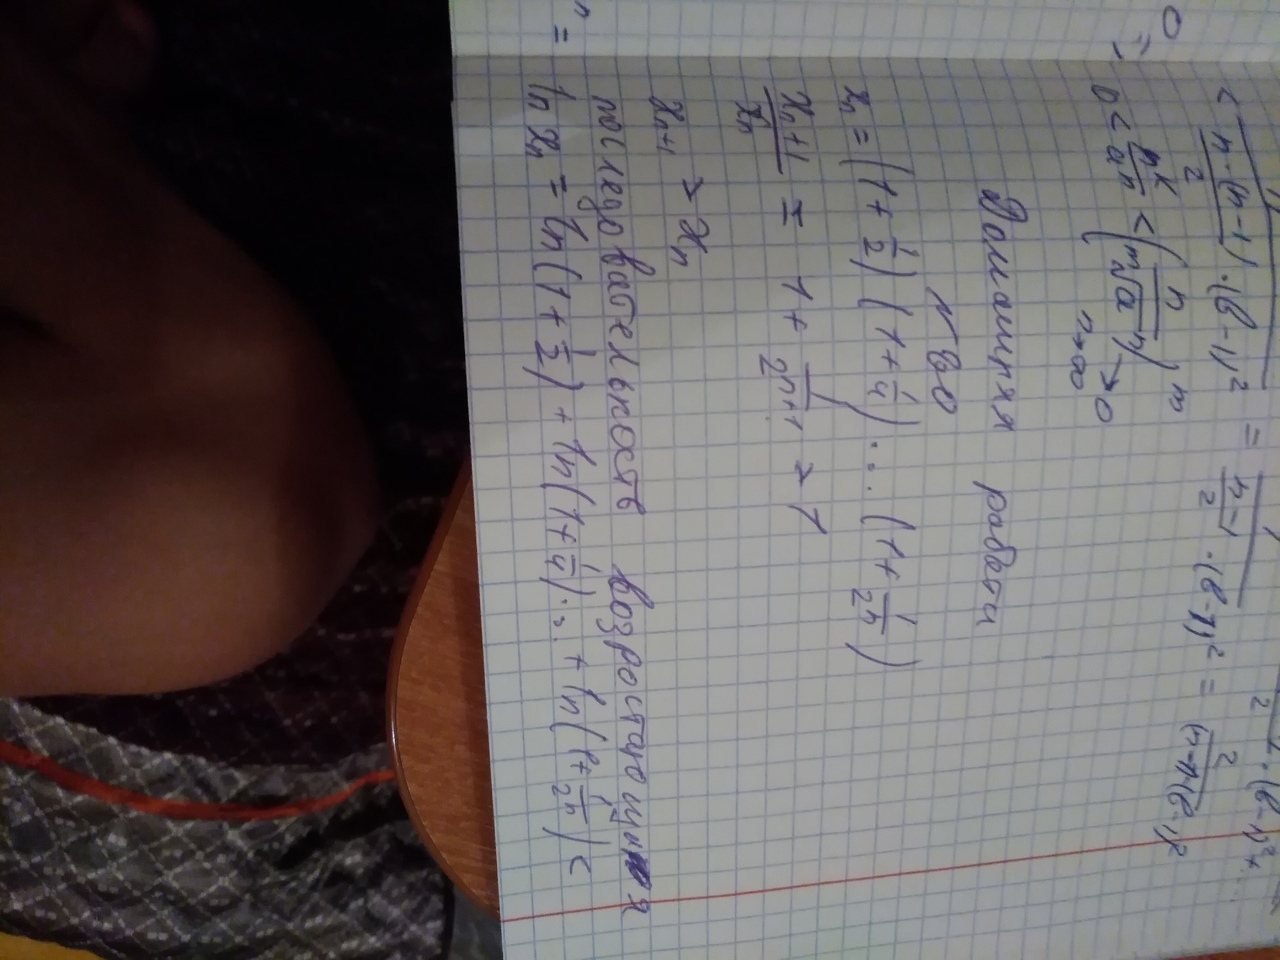 < 1/(n·(n-1)/2 · (b-1)²) = 1/((n-1)/2 · (b-1)²) = 2/((n-1)(b-1)²)
0 < n^k/a^n < (n/(ᵐ√a)ⁿ)^m → 0
n→∞
Домашняя работа
N 60
xₙ = (1 + 1/2)(1 + 1/4)... (1 + 1/2ⁿ)
xₙ₊₁/xₙ = 1 + 1/2ⁿ⁺¹ > 1
xₙ₊₁ > xₙ
последовательность возростающая
ln xₙ = ln(1 + 1/2) + ln(1 + 1/4)... + ln(1 + 1/2ⁿ) <